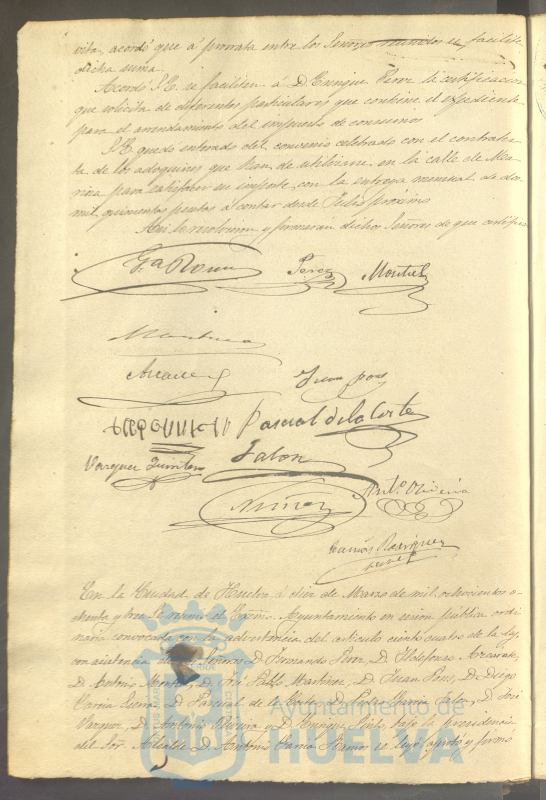 vita, acordó que á prorrata entre los Señores reunidos se facilite
dicha suma.
Acordó S.E. se facilite á D. Enrique Perez la certificacion
que solicita de diferentes particulares que contiene el expediente
para el arrendamiento del impuesto de consumos.
S.E. quedó enterado del convenio celebrado con el contratis
ta de los adoquines que han de utilizarse en la calle de Ma
rina para satisfacer su importe con la entrega mensual de dos
mil quinientas pesetas á contar desde Julio proximo
Asi lo resolvieron y firmaran dichos Señores de que certifico
Perez Montiel
Martinez
Juan pons
Pascual de la Corte
Vazquez
Jalon
Nuñez
Ant.º Oliveira
Ramós Rodriguez
En la Ciudad de Huelva á diez de Marzo de mil ochocientos o
chenta y tres se reunió el Excmo. Ayuntamiento en sesion pública ordi
naria convocada con la advertencia del articulo ciento cuatro de la Ley,
con asistencia de los Señores D. Fernando Perez, D. Ildefonso Azcarate,
D. Antonio Montiel, D. José Pablo Martinez, D. Juan Pons, D. Diego
Garcia D. Pascual de la Corte, D. José
Vazquez, D. Antonio Oliveira y D. Enrique bajo la presidencia
del Sor. Alcalde D. Antonio Garcia Ramos se leyó, aprobó y firmó
Ayuntamiento de
HUELVA